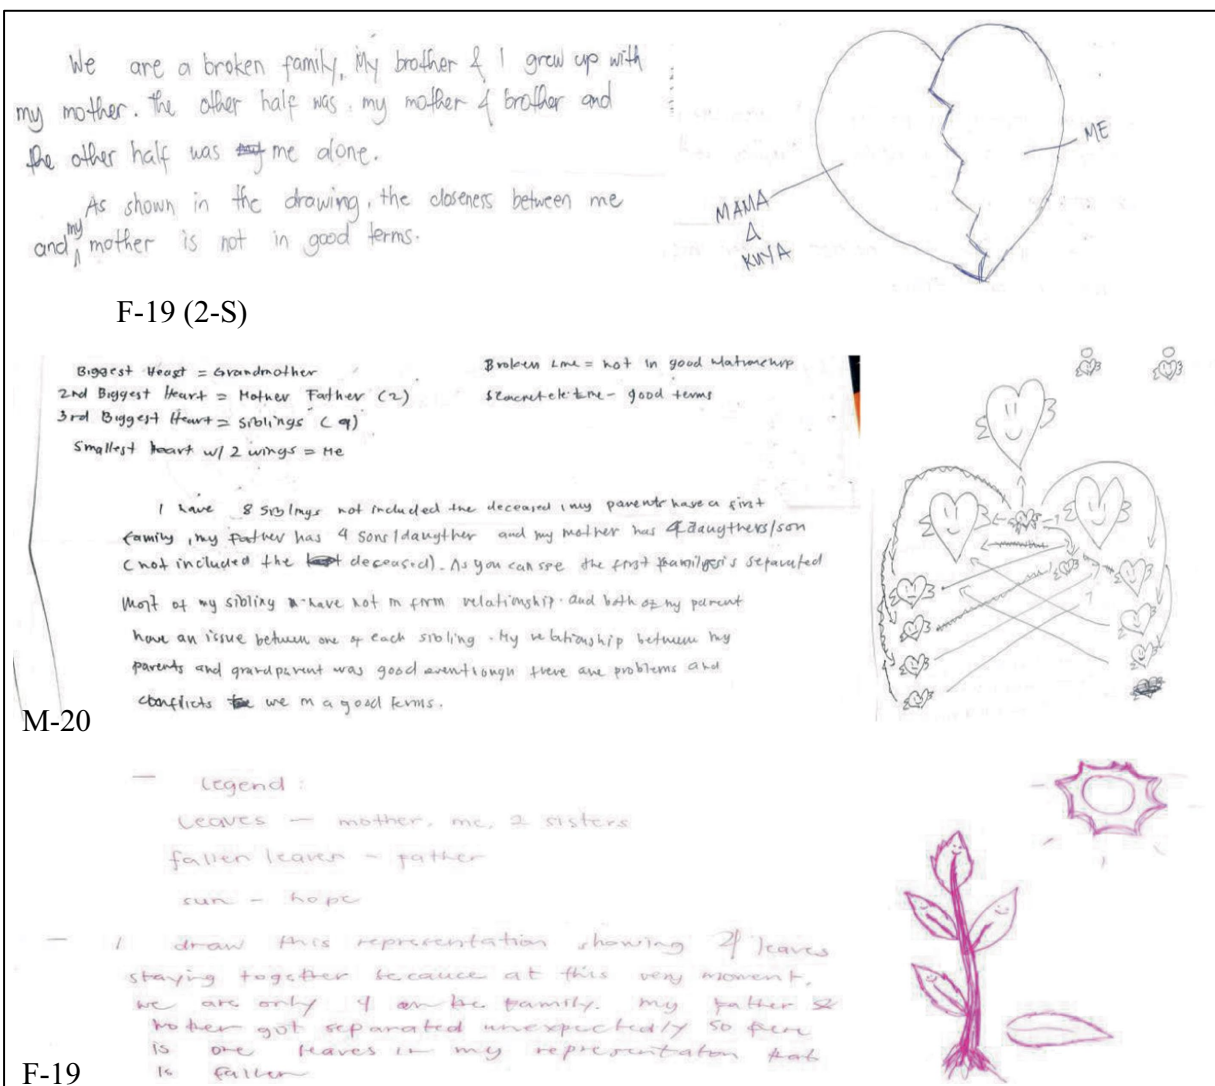 We are a broken family, My brother & I grew up with
my mother. the other half was my mother & brother and
the other half was me alone.
As shown in the drawing, the closeness between me
and my mother is not in good terms.
ME
MAMA
&
KUYA
F-19 (2-S)
Biggest Heart = Grandmother
2nd Biggest Heart = Mother Father (2)
3rd Biggest Heart = Siblings (9)
Smallest heart w/ 2 wings = Me
Broken Line = not in good
line - good terms
I have 8 siblings not included the deceased my parents have a first
family, my Father has 4 sons/daugther and my mother has 4 daugthers/son
(not included the deceased). As you can see the first is separated
Most of my sibling have not in firm relationship. and both of my parent
have an issue between one of each sibling. My relationship between my
parents and grandparent was good eventhough there are problems and
conflicts we in a good terms.
M-20
— Legend:
Leaves — mother, me, 2 sisters
fallen leaves - father
sun - hope
— I draw this representation showing 4 leaves
staying together because at this very moment,
we are only 4 in the family. my father &
mother got separated unexpectedly so
is one leaves in my representation that
is fallen
F-19